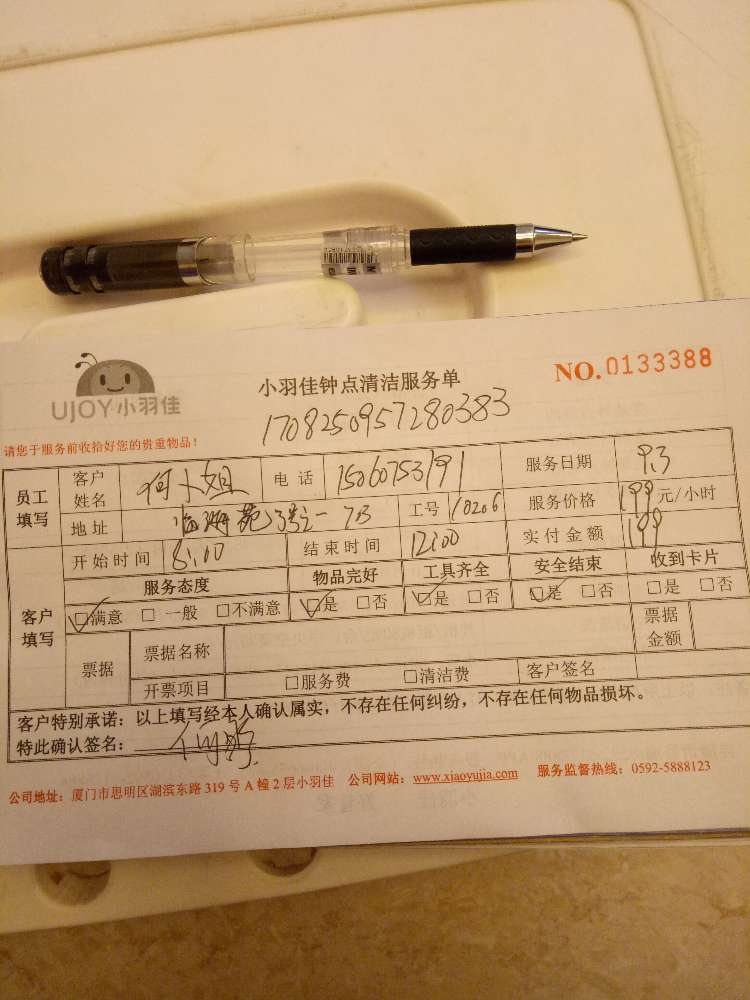 UJOY小羽佳
小羽佳钟点清洁服务单
NO. 0133388
1708250957280383
请您于服务前收拾好您的贵重物品！
员工填写 客户姓名 何小姐 电话 15060753191 服务日期 9.3
地址 临海苑3号一7B 工号 10206 服务价格 199 元/小时
客户填写 开始时间 8:00 结束时间 12:00 实付金额 199
服务态度 物品完好 工具齐全 安全结束 收到卡片
☑满意 □一般 □不满意 ☑是 □否 ☑是 □否 ☑是 □否 □是 □否
票据 票据名称 票据金额
开票项目 □服务费 □清洁费 客户签名
客户特别承诺：以上填写经本人确认属实，不存在任何纠纷，不存在任何物品损坏。
特此确认签名：
公司地址：厦门市思明区湖滨东路 319 号 A 幢 2 层小羽佳 公司网站：www.xiaoyujia.com 服务监督热线：0592-5888123